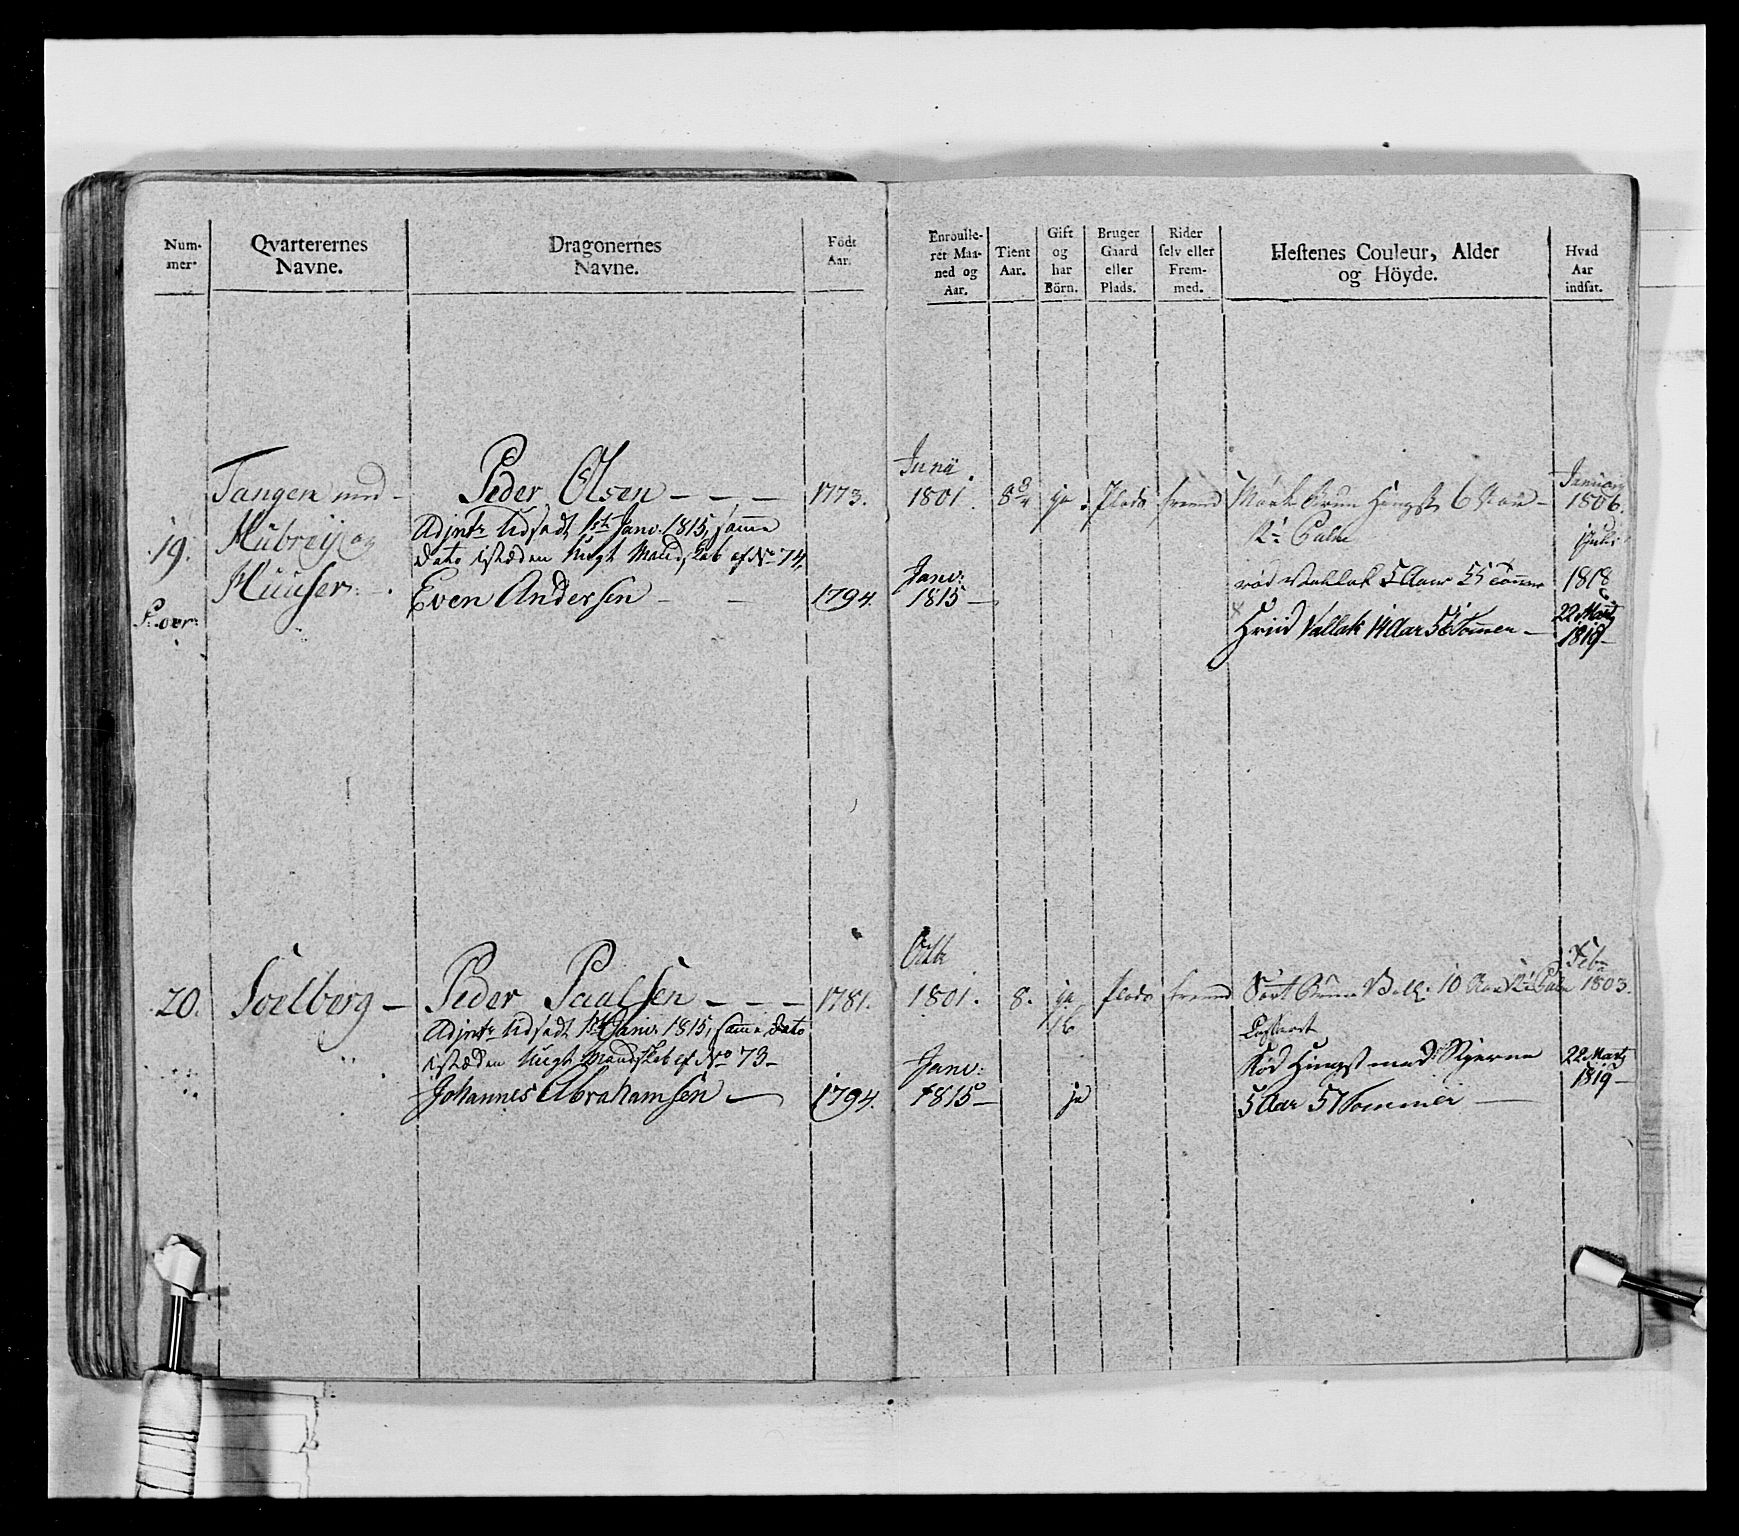 Num-
mer.
Qvarterernes
Navne.
Dragonernes
Navne.
Födt
Aar.
Enroulle-
ret Maa-
ned og
Aar.
Tient
Aar.
Gift
og
har
Börn.
Bruger
Gaard
eller
Plads.
Rider
selv eller
Frem-
med.
Hestenes Couleur, Alder
og Höyde.
Hvad
Aar
indsat.
19.
Tangen med
Huuser
Peder Olsen - - -
Adjntr Udsadt 1ste Janv. 1815, samme
Dato istæden Uugt Mandskab af No 74.
Even Andersen - -
1773.
1794.
Junii
1801.
Janv:
1815 -
8
ja
Plads
fremd
Mörk Bruun Hingst 6 Aar -
rød Vallak 5 Aar 55 Tommer
Hviid Vallak 14 Aar Tommer -
January
1806.
1818
22 Marty
1819 -
20.
Soelberg -
Peder Paulsen - - -
Adjntr Udsadt 1ste Janv. 1815, samme Dato
istæden Uugt Mandskab af No 73 -
Johannes Abrahamsen -
1781.
1794.
Octbr
1801.
Janv:
1815 -
8.
ja
ja
Plads
fremd
Sort Bruun 10 Aar
Rød Hingst med Stjerne
5 Aar 57 Tommer -
Feb
1803.
22 Marty
1819 -